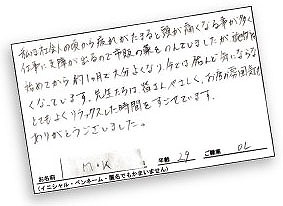 私は社会人の頃から疲れがたまると頭が痛くなる事が多く
仕事に支障が出るので市販の薬をのんでいましたが施術を
始めてから約1ヶ月で大分よくなり、今では殆んど気にならな
くなっています。先生たちは皆さんやさしく、お店の雰囲気も
とてもよくリラックスした時間をすごせています。
ありがとうございました。
お名前 M・K 年齢 29 ご職業 OL
(イニシャル・ペンネーム・匿名でもかまいません)